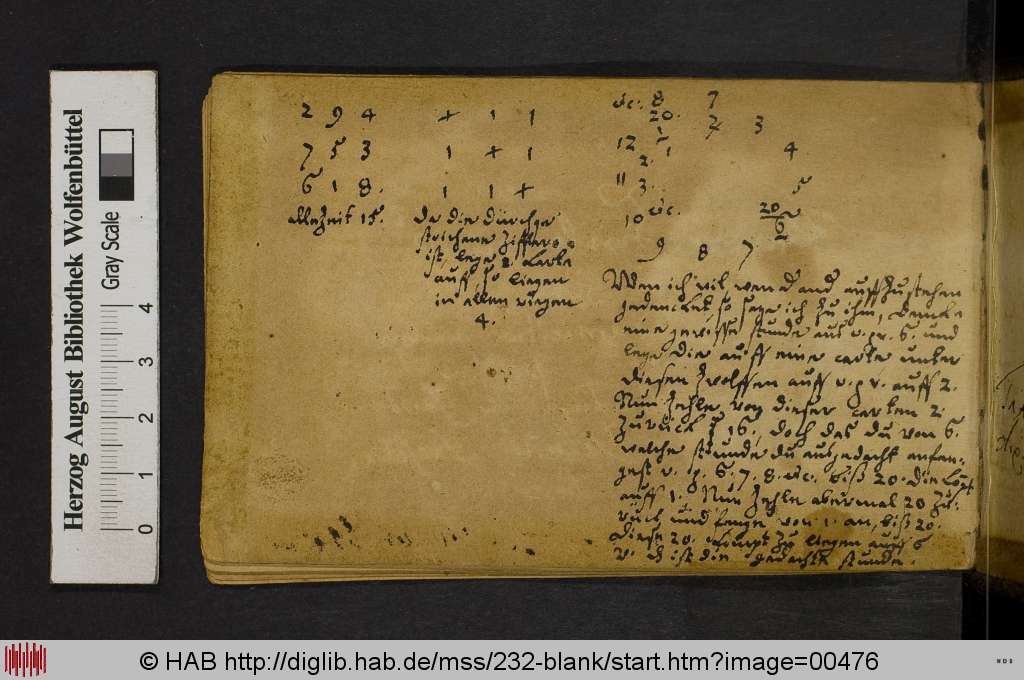 2 9 4
7 5 3
6 1 8.
allezeit 15.
+ 1 1
1 + 1
1 1 +
Da die durchge
strichene Ziffern
ist, lege 2 Carte
auff, so liegen
in allen riegen
4.
etc. 8 7
20. 7 3
12 1
2. 1 4
11 3. 5
10 etc. 20
6
9 8 7
Wen ich wil jemand auffzustehen
gedencket, so sage ich zu ihm, dencke
eine gewisse stunde aus v. gr. 6. und
lege die auff eine carte unter
diesen zwolffen auff v. gr. auff 2.
Nun zehle von dieser carten 2
zurück 16, doch das du von 6.
welche stunde du ausgedacht anfan-
gest v. g. 6. 7. 8. etc. biß 20. die
auff 1. Nun zehle abermal 20 zu-
rück und fange von 1. an, biß 20.
diese 20. kompt zu liegen auff 6
ist die gedachte stunde.
Herzog August Bibliothek Wolfenbüttel
Gray Scale
0 1 2 3 4
© HAB http://diglib.hab.de/mss/232-blank/start.htm?image=00476